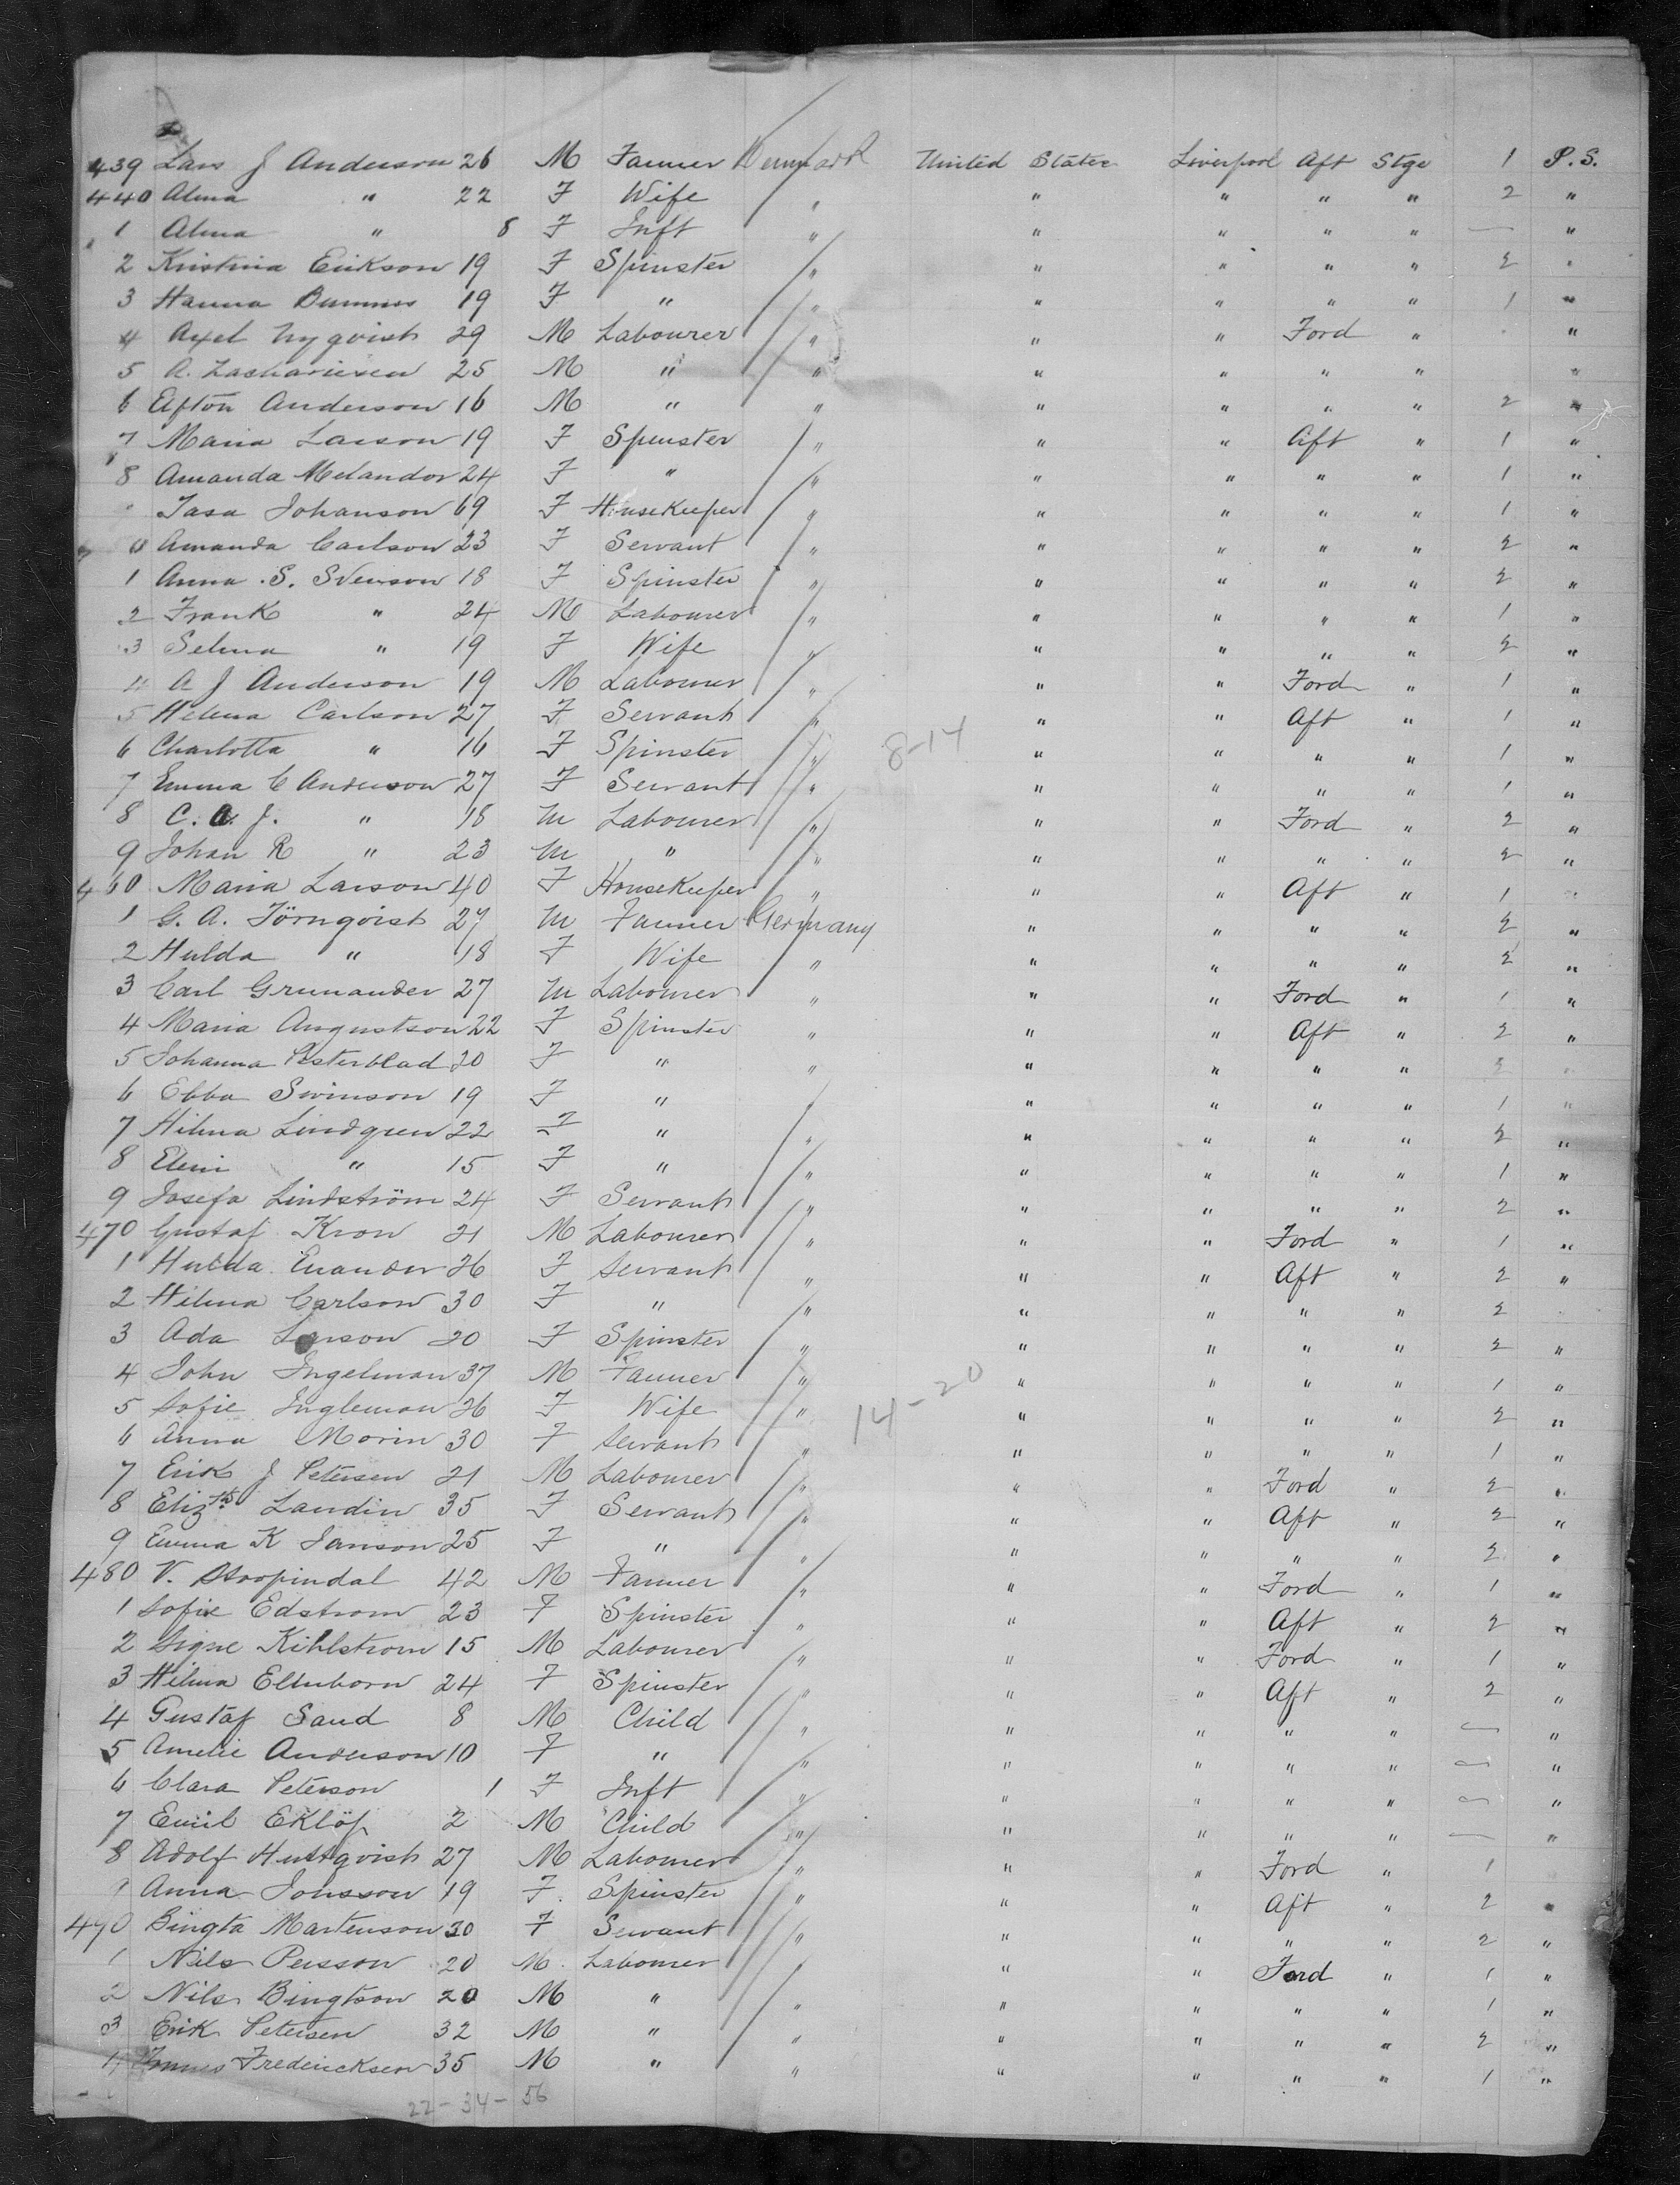 439 Lars J Anderson 26 M Farmer Denmark United States Liverpool Aft Stge 1 P.S.
440 Alma " 22 F Wife " " " " " 2 "
1 Alma " 8 F Inft " " " " " — "
2 Kristina Erikson 19 F Spinster " " " " " 2 "
3 Hanna 19 F " " " " " " 1 "
4 Axel Nyqvist 29 M Labourer " " " Ford " "
5 A. Zachariesen 25 M " " " " " " "
6 Anderson 16 M " " " " " " 2 "
7 Maria Larson 19 F Spinster " " " Aft " 1 "
8 Amanda Melandor 24 F " " " " " " 1 "
Johanson 69 F HouseKeeper " " " " " 1 "
0 Amanda Carlson 23 F Servant " " " " " 2 "
1 Anna .S. Svenson 18 F Spinster " " " " " 2 "
2 Frank " 24 M Labourer " " " " " 1 "
3 Selma " 19 F Wife " " " " " 2 "
4 A J Anderson 19 M Labourer " " " Ford " 1 "
5 Helena Carlson 27 F Servant " " " Aft " 1 "
6 Charlotta " 16 F Spinster " 8-14 " " " " 1 "
7 Emma C Anderson 27 F Servant " " " " " 1 "
8 C. A. J. " 18 M Labourer " " " Ford " 2 "
9 Johan R " 23 M " " " " " " 2 "
460 Maria Larson 40 F HouseKeeper " " " Aft " 1
1 G. A. Törnqvist 27 M Farmer Germany " " " " 2 "
2 Hulda " 18 F Wife " " " " " 2 "
3 Carl Grunander 27 M Labourer " " " Ford " 1 "
4 Maria Augustson 22 F Spinster " " " Aft " 2 "
5 Johanna 20 F " " " " " " 2 "
6 Ebba Swinson 19 F " " " " " " 1 "
7 Hilma Lindgren 22 F " " " " " " 2 "
8 Elin " 15 F " " " " " " 1 "
9 Josefa Lindström 24 F Servant " " " " " 2 "
470 Gustaf Kron 21 M Labourer " " " Ford " 1 "
1 Hulda Enander 26 F Servant " " " Aft " 2 "
2 Hilma Carlson 30 F " " " " " " 2
3 Ada Larson 20 F Spinster " " " " " 2 "
4 John Ingelman 37 M Farmer " " " " " 1 "
5 Sofie Ingleman 26 F Wife " 14-20 " " " " 2 "
6 Anna Morin 30 F Servant " " " " " 1 "
7 Erik J Petersen 21 M Labourer " " " Ford " 2 "
8 Elizth Landin 35 F Servant " " " Aft " 2 "
9 Emma K Janson 25 F " " " " " " 2 "
480 V. 42 M Farmer " " " Ford " 1 "
1 Sofie Edstrom 23 F Spinster " " " Aft " 2 "
2 Signe Kihlstrom 15 M Labourer " " " Ford " 1 "
3 Hilma 24 F Spinster " " " Aft " 2 "
4 Gustaf Sand 8 M Child " " " " " — "
5 Amelie Anderson 10 F " " " " " " — "
6 Clara Peterson 1 F Inft " " " " " — "
7 Emil Eklöf 2 M Child " " " " " — "
8 Adolf Hultqvist 27 M Labourer " " " Ford " 1
9 Anna Jonsson 19 F. Spinster " " " Aft " 2 "
490 Bingta Martenson 30 F Servant " " " " " 2 "
1 Nils Persson 20 M. Labourer " " " Ford " 1 "
2 Nils Bingtson 20 M " " " " " " 1 "
3 Erik Petersen 32 M " " " " " " 2 "
4 Fredericksen 35 M " " " " " " 1 "
22-34-56